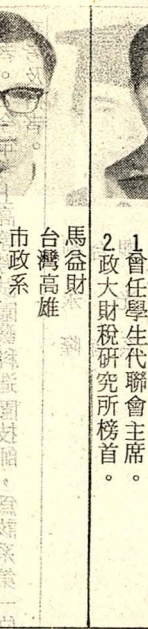 1曾任學生代聯會主席。
2.政大財稅研究所榜首。
馬益財
台灣高雄
市政系